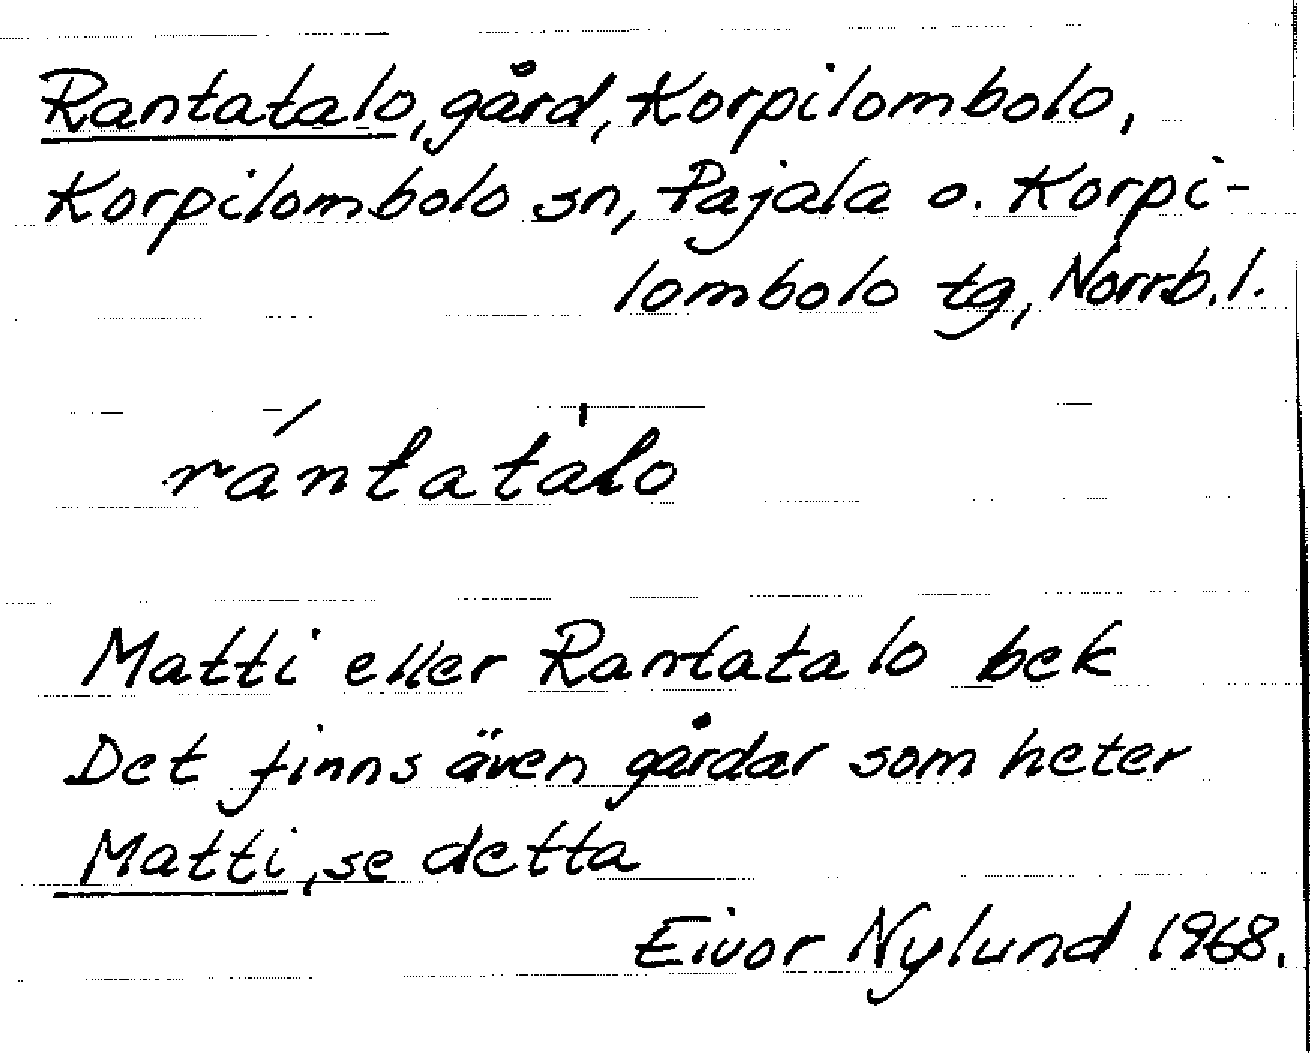 Rantatalo, gård, Korpilombolo,
Korpilombolo sn, Pajala o. Korpi-
lombolo tg, Norrb. l.
rántatàlo
Matti eller Rantatalo bek
Det finns även gårdar som heter
Matti, se detta
Eivor Nylund 1968.